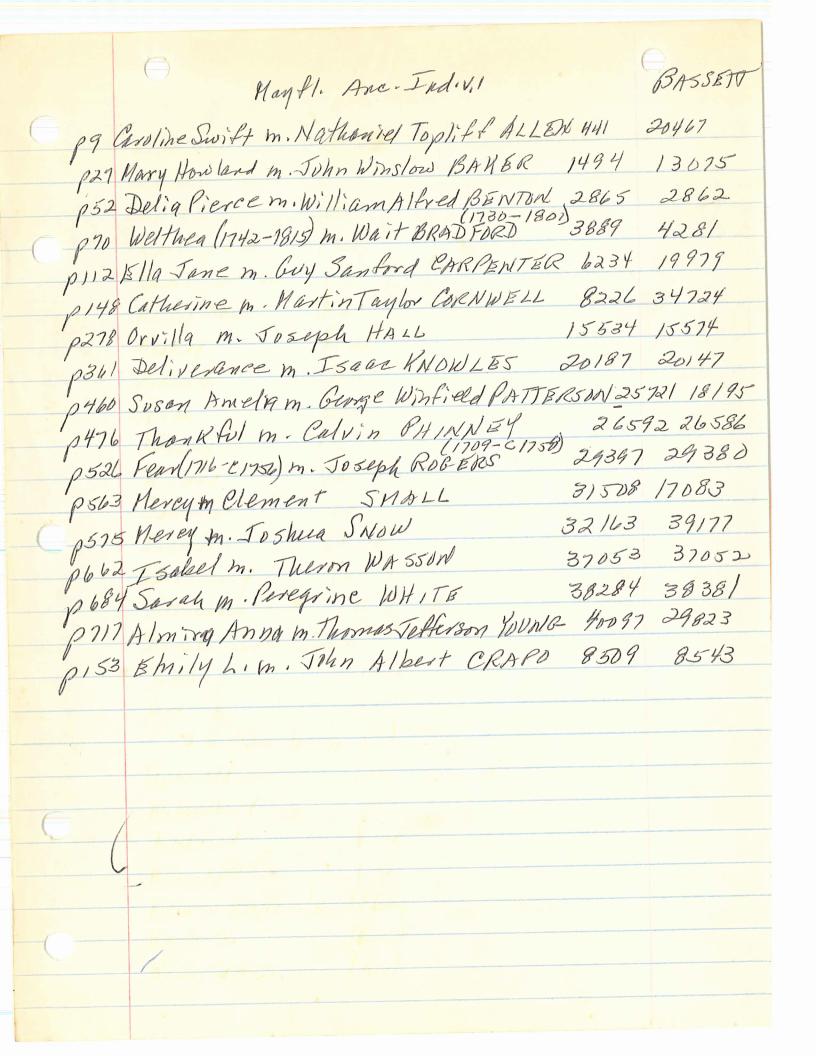 Mayfl. Anc. Indiv.l BASSETT
p9 Caroline Swift m. Nathaniel Topliff ALLEN 441 20467
p27 Mary Howland m. John Winslow BAKER 1494 13075
p52 Delia Pierce m. William Alfred BENTON 2865 2862
p70 Welthea (1742-1815) m. Wait BRADFORD (1730-1801) 3889 4281
p112 Ella Jane m. Guy Sanford CARPENTER 6234 19979
p148 Catherine m. Martin Taylor CORNWELL 8226 34724
p278 Orvilla m. Joseph HALL 15534 15574
p361 Deliverance m. Isaac KNOWLES 20187 20147
p460 Susan Amelia m. George Winfield PATTERSON 25721 18195
p476 Thankful m. Calvin PHINNEY 26592 26586
p526 Fear (1716-c1756) m. Joseph ROGERS (1709-c1758) 29397 29380
p563 Mercy m Clement SMALL 31508 17083
p575 Mercy m. Joshua SNOW 32163 39177
p662 Isabel m. Theron WASSON 37053 37052
p684 Sarah m. Peregrine WHITE 38284 38381
p717 Almira Anna m. Thomas Jefferson YOUNG 40097 29823
p153 Emily L. m. John Albert CRAPO 8509 8543